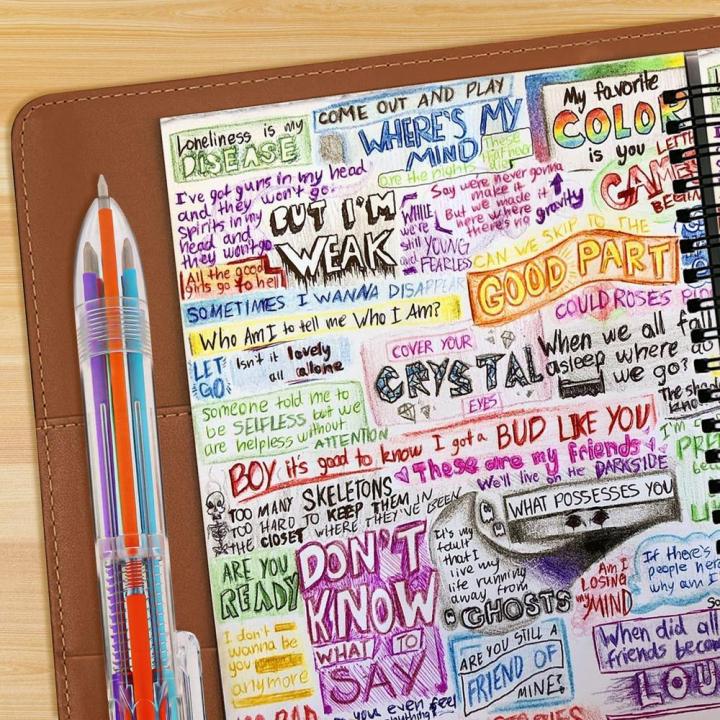 COME OUT AND PLAY
Loneliness is my
DISEASE
WHERE'S MY
MIND
are the nights
My favorite
COLOR
is you
I've got guns in my head
and they won't go
spirits in my
head and
they won't go
BUT I'M
WEAK
WHILE
we're
still YOUNG
and FEARLESS
Say we're never gonna
make it
But we made it
here where
there's no gravity
GAMES
BEGIN
All the good
girls go to hell
CAN WE SKIP TO THE
GOOD PART
SOMETIMES I WANNA DISAPPEAR
COULD ROSES
Who Am I to tell me Who I Am?
LET
GO
Isn't it lovely
all alone
COVER YOUR
CRYSTAL
EYES
When we all fa
asleep where do
we go?
someone told me to
be SELFLESS but we
are helpless without
ATTENTION
BOY it's good to know I got a BUD LIKE YOU
These are my friends
We'll live on the DARKSIDE
TOO MANY SKELETONS
TOO HARD TO KEEP THEM IN
THE CLOSET WHERE THEY'VE BEEN
WHAT POSSESSES YOU
It's my
fault
that I
live my
life running
away from
GHOSTS
ARE YOU
READY
DON'T
KNOW
WHAT TO
SAY
Am I
LOSING
my MIND
If there's
people here
why am I
I don't
wanna be
you
anymore
ARE YOU STILL A
FRIEND OF
MINE?
When did all
friends beco
LOU
you even feel